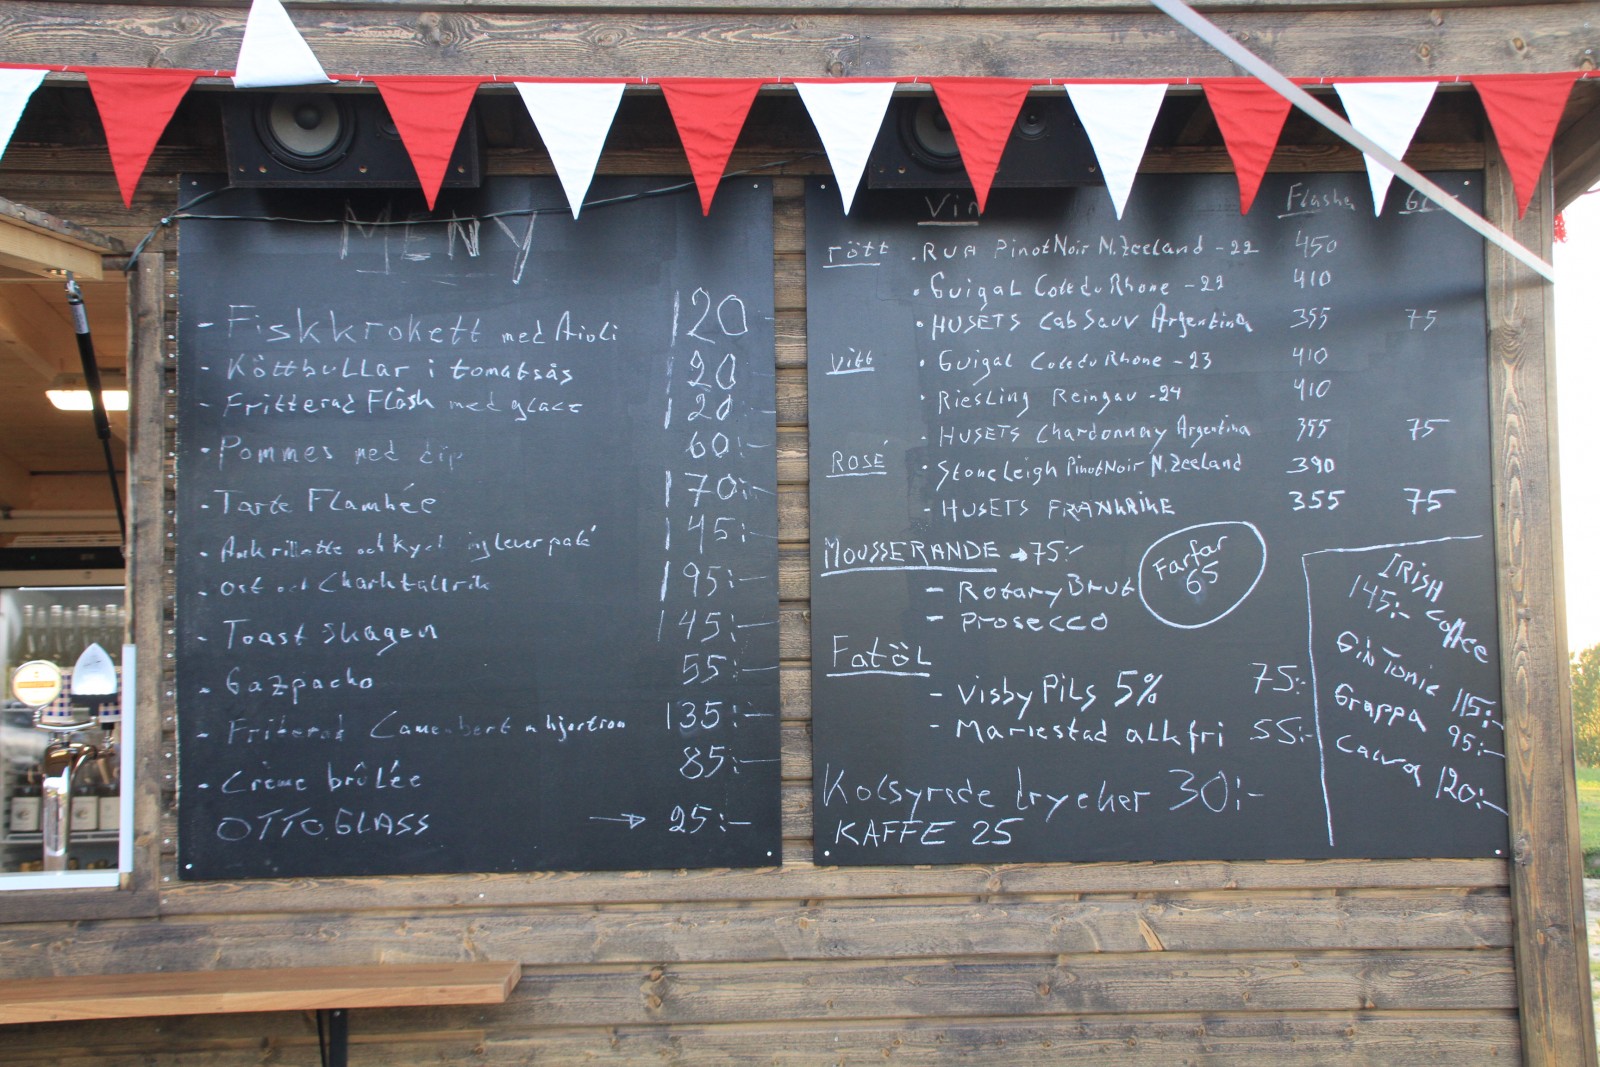 MENY
- Fiskkrokett med Aioli 120
- Köttbullar i tomatsås 120
- Fritterad Fläsk med glace 120
- Pommes med dip 60:-
- Tarte Flambée 170:-
- Ankrillette och Kyckinglever paté 145:-
- Ost och Charktallrik 195:-
- Toast Skagen 145:-
- Gazpacho 55:-
- Friterad Camembert m hjortron 135:-
- Crème brûlée 85:-
OTTO GLASS → 25:-
Vin Flaska
rött . RUA Pinot Noir N.Zeeland - 22 450
. Guigal Cote du Rhone - 21 410
. HUSETS Cab Sauv Argentina 355 75
Vitt . Guigal Cote du Rhone - 23 410
. Riesling Reingau - 24 410
. HUSETS Chardonnay Argentina 355 75
ROSÉ . Stoneleigh Pinot Noir N.Zeeland 390
- HUSETS FRANKRIKE 355 75
MOUSSERANDE → 75:-
- Rotary Brut
- Prosecco
Farfar
65
Fatöl
- Visby Pils 5% 75:-
- Mariestad alkfri 55:-
Kolsyrade drycker 30:-
KAFFE 25
IRISH
coffee
145:-
Gin Tonic 115:-
Grappa 95:-
Calva 120:-